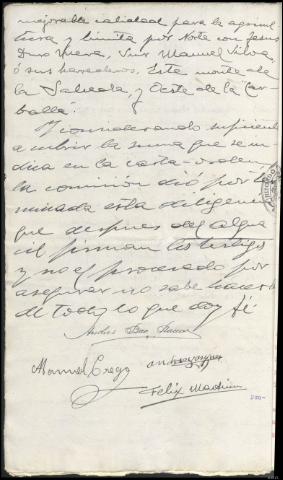 mejorable calidad para la agricul
tura y linda por Norte con Jesus
Sur Manuel Silva,
ó sus herederos, Este monte de
la y Oeste de la Car
balla.
Y considerando suficiente
a cubrir la suma que se in
dica en la carta-orden,
la comisión dió por ter
minada esta diligencia
que despues del algua
cil firman los testigos
y no el procesado por
asegurar no saber hacerlo
de todo lo que doy fé
Manuel Crego
Felix